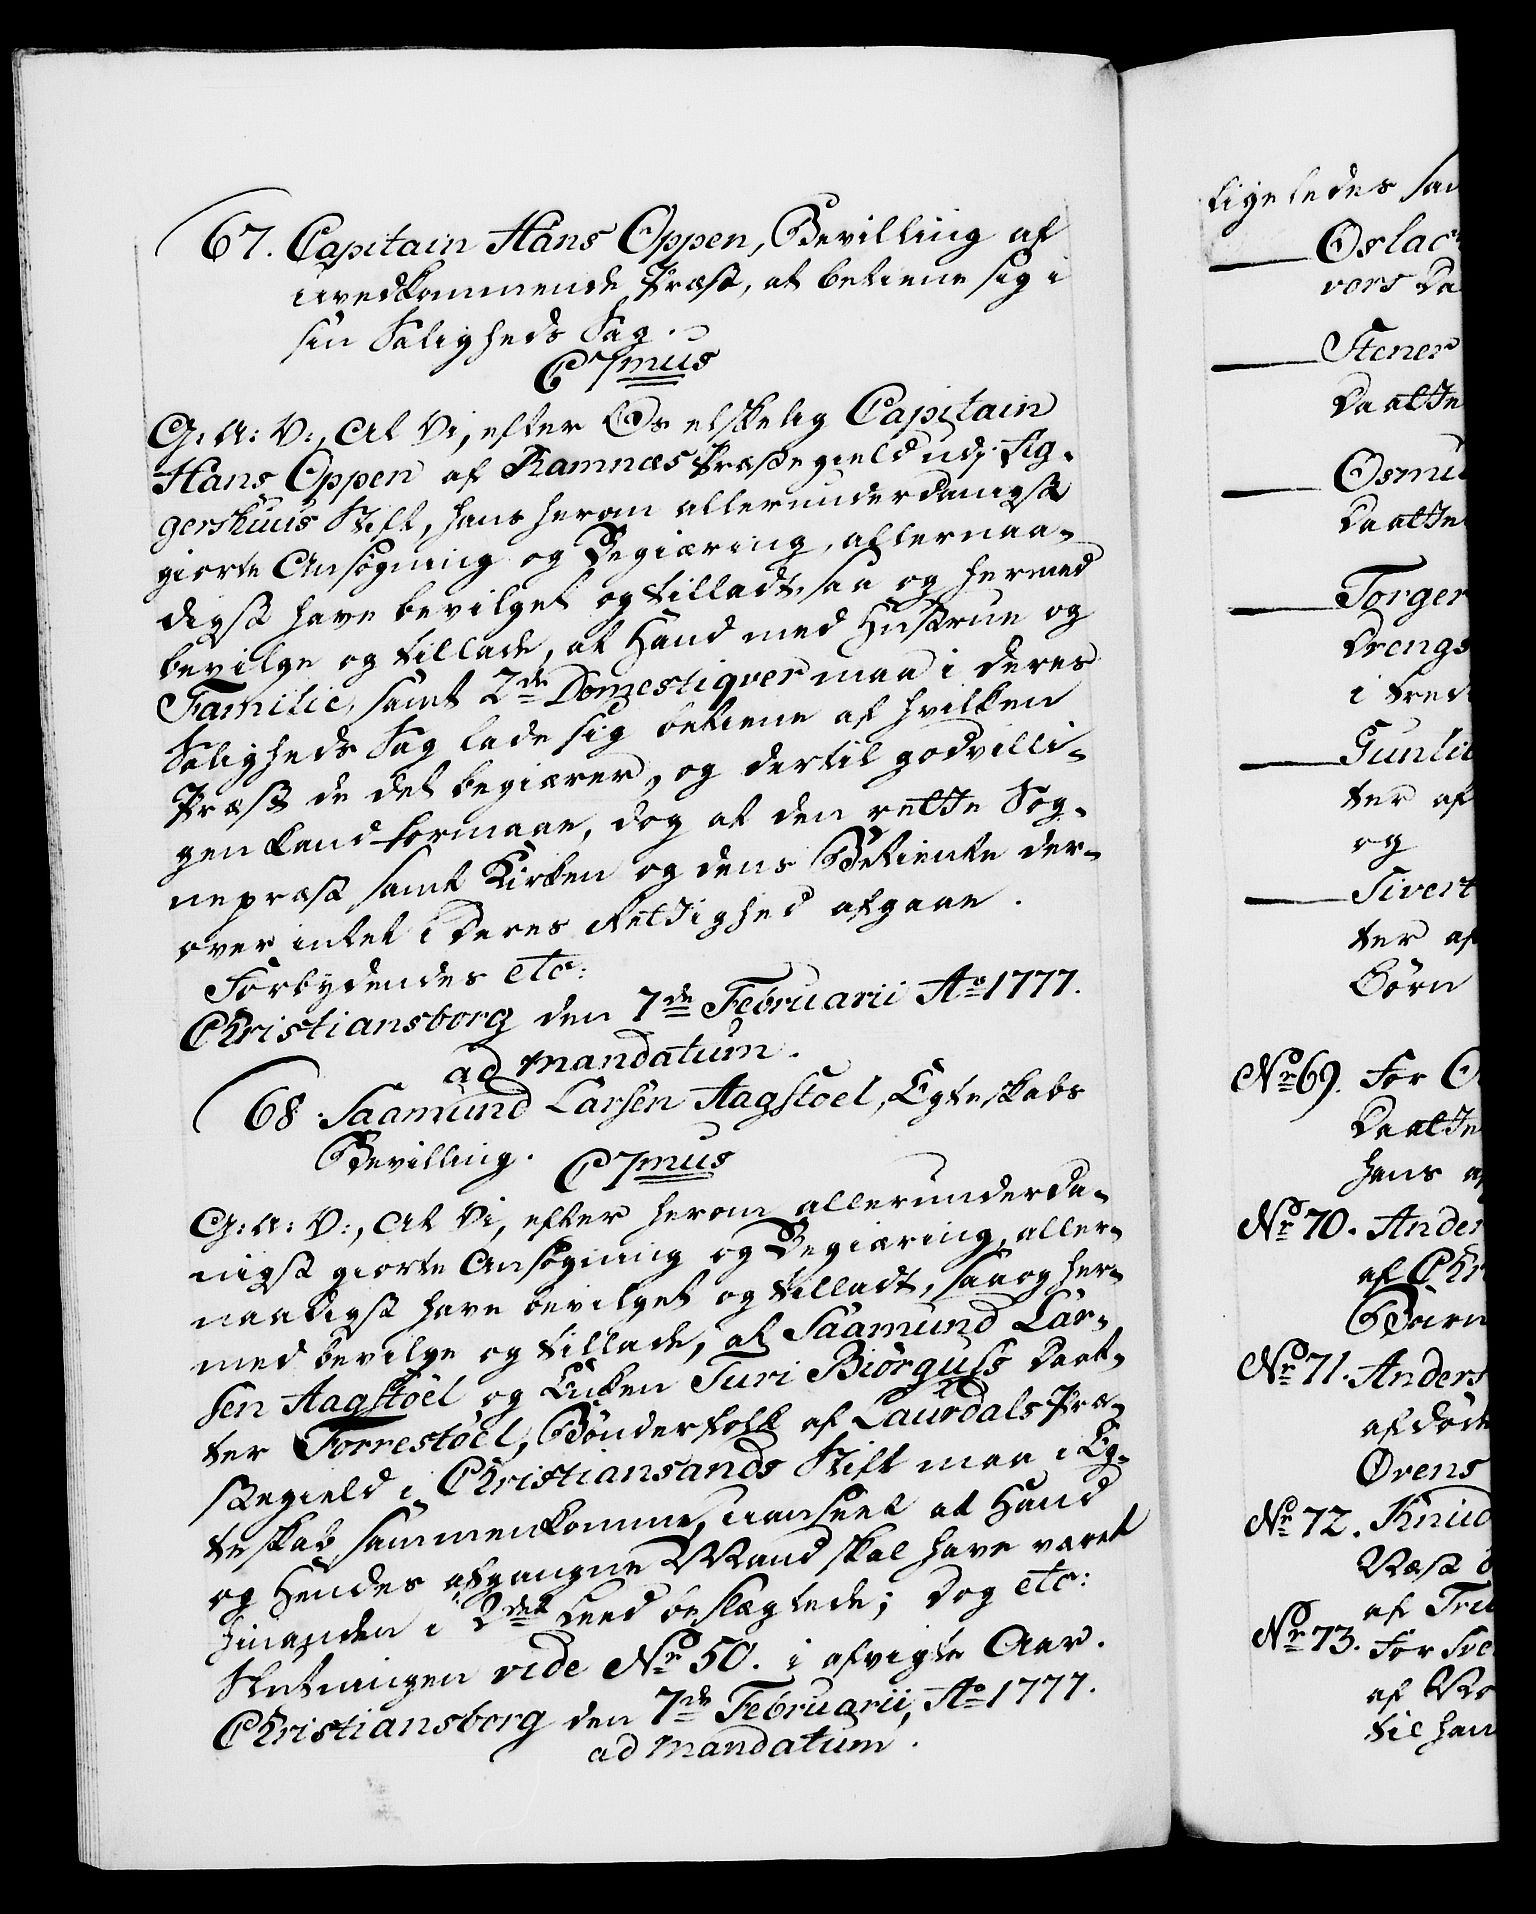 67. Capitain Hans Oppen, Bevilling af
uvedkommende Præst, at betiene sig i
sin Saligheds Sag.
C7mus
G: A: V:, At Vi, efter Os elskelig Capitain
Hans Oppen af Ramnæs Præstegield udj Ag-
gershuus Stift, hans herom allerunderdanigst
giorte Ansøgning og Begiæring, allernaa-
digst have bevilget og tilladt, saa og hermed
bevilge og tillade, at Hand med Hustrue og
Familie, samt 2de Domestiqver maa i deres
Saligheds Sag lade sig betiene af hvilken
Præst de det begiærer, og dertil godvilli-
gen kand formaae, dog at den rette Sog-
nepræst samt Kirken og dens Betiente der-
over intet i deres Rettighed afgaae.
Forbydendes etc:
Christiansborg den 7de Februarii Ao 1777.
ad mandatum.
68. Saamund Larsen Aagstoel, Egteskabs
Bevilling. C7mus
G: A: V:, At Vi, efter herom allerunderda-
nigst giorte Ansøgning og Begiæring, aller-
naadigst have bevilget og tilladt, saa og her-
med bevilge og tillade, at Saamund Lar-
sen Aagstoel og Enken Turi Biørguls Daat-
ter Torrestoel, Bønderfolk af Laurdals Præ-
stegield i Christiansands Stift maa i Eg-
teskab sammenkomme, uanseet at Hand
og Hendes afgangne Mand skal have været
hinanden i 2det Leed beslægtede; Dog etc:
Slutningen vide No 50. i afvigte Aar.
Christiansborg den 7de Februarii, Ao 1777.
ad mandatum.
ligeledes
Oslac
vors Da
Stener
Daatte
Osmu
Daatte
Torger
Drengs
i tred
Gunli
ter af
og
Sivert
ter af
Børn
No 69. For
Daatte
hans af
No 70. Ander
af Chr
Barn
No 71. Anders
afdøde
Ørens
No 72. Knud
Væst
af Tru
No 73. For Sve
af
til han